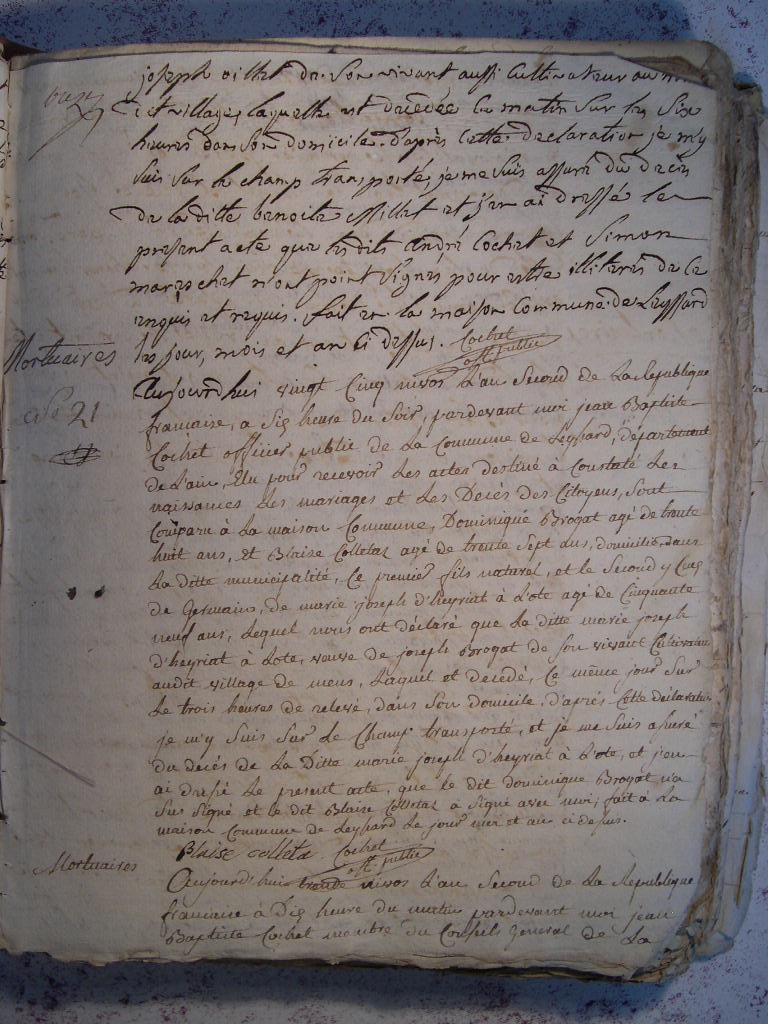 joseph oillet de Son vivant aussi Cultivateur au
dit village, laquelle est décédée Ce matin Sur les Six
heures dans Son domicile. d'après Cette declaration je m'y
suis Sur le champ transporté, je me Suis assuré du décès
de la ditte benoite Millet et j'en ai dressé le
present acte que lesdits andré Cochet et Simon
mareschet n'ont point Signés pour estre illiterés de Ce
enquis et requis. fait en la maison Commune de Leyssard
les jour, mois et an Ci dessus. Cochet
off. public
Mortuaires
21
Aujourdhui vingt Cinq nivos L'an Second de La Republique
francaise, a Six heure du Soir, pardevant moi jean Baptiste
Cochet officier public de La Commune de Leyssard, département
de L'ain, Elu pour recevoir Les actes destiné à Constaté Les
naissances Les mariages et Les Decés Des Citoyens, Sont
Comparu à La maison Commune, Dominique Brogat agé de trente
huit ans, Et Blaise Colletaz agé de trente Sept ans, domicilié dans
La ditte municipalité, Ce premier fils naturel, et le Second
de Germain, de marie joseph d'heyriat à L'ote agé de Cinquante
neuf ans, Lequel nous ont déclaré que La ditte marie joseph
d'heyriat à Lote, veuve de joseph Brogat de Son vivant Cultivateur
audit village de mens, Laquel et decedé, Ce même jour Sur
Le trois heures de relevé, dans Son domicile, d'aprés Cette déclaration
je m'y Suis Sur Le Champ transporté, et je me Suis assuré
du decés de La Ditte marie joseph d'heyriat à L'ote, et j'en
ai dressé Le present acte, que le dit dominique Brogat n'a
Sus Signé et le dit Blaise Colletaz à Signé avec moi; fait à La
maison Commune de Leyssard Le jour moi et an ci desus.
Blaise colleta Cochet
off. public
Mortuaires
Aujourd'hui trente nivos L'an Second de La Republique
francaise à Dix heure du matin pardevant moi jean
Baptiste Cochet membre du Conseils General de La